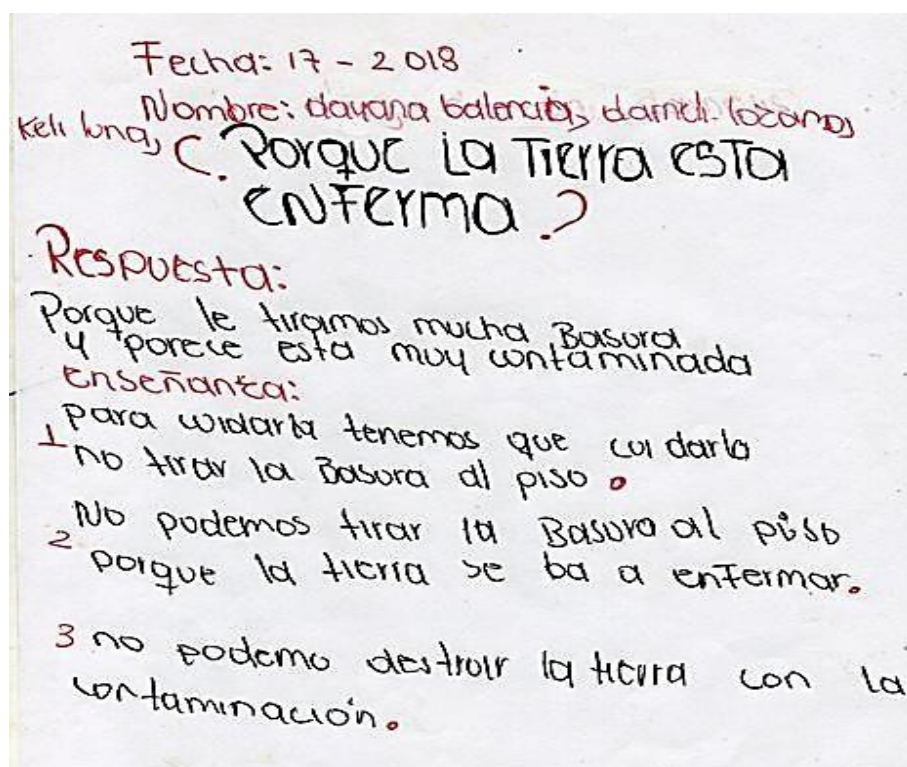 Fecha: 17 - 2018
Nombre: dayana balencia, darneli lozano,
Keli luna,
¿Porque la Tierra esta
enferma?
Respuesta:
Porque le tiramos mucha Basura
y porece esta muy contaminada
enseñanza:
para cuidarla tenemos que cuidarla
1 no tirar la Basura al piso.
No podemos tirar la Basura al piso
2 porque la tierra se ba a enfermar.
3 no podemo destroir la tierra con la
contaminación.